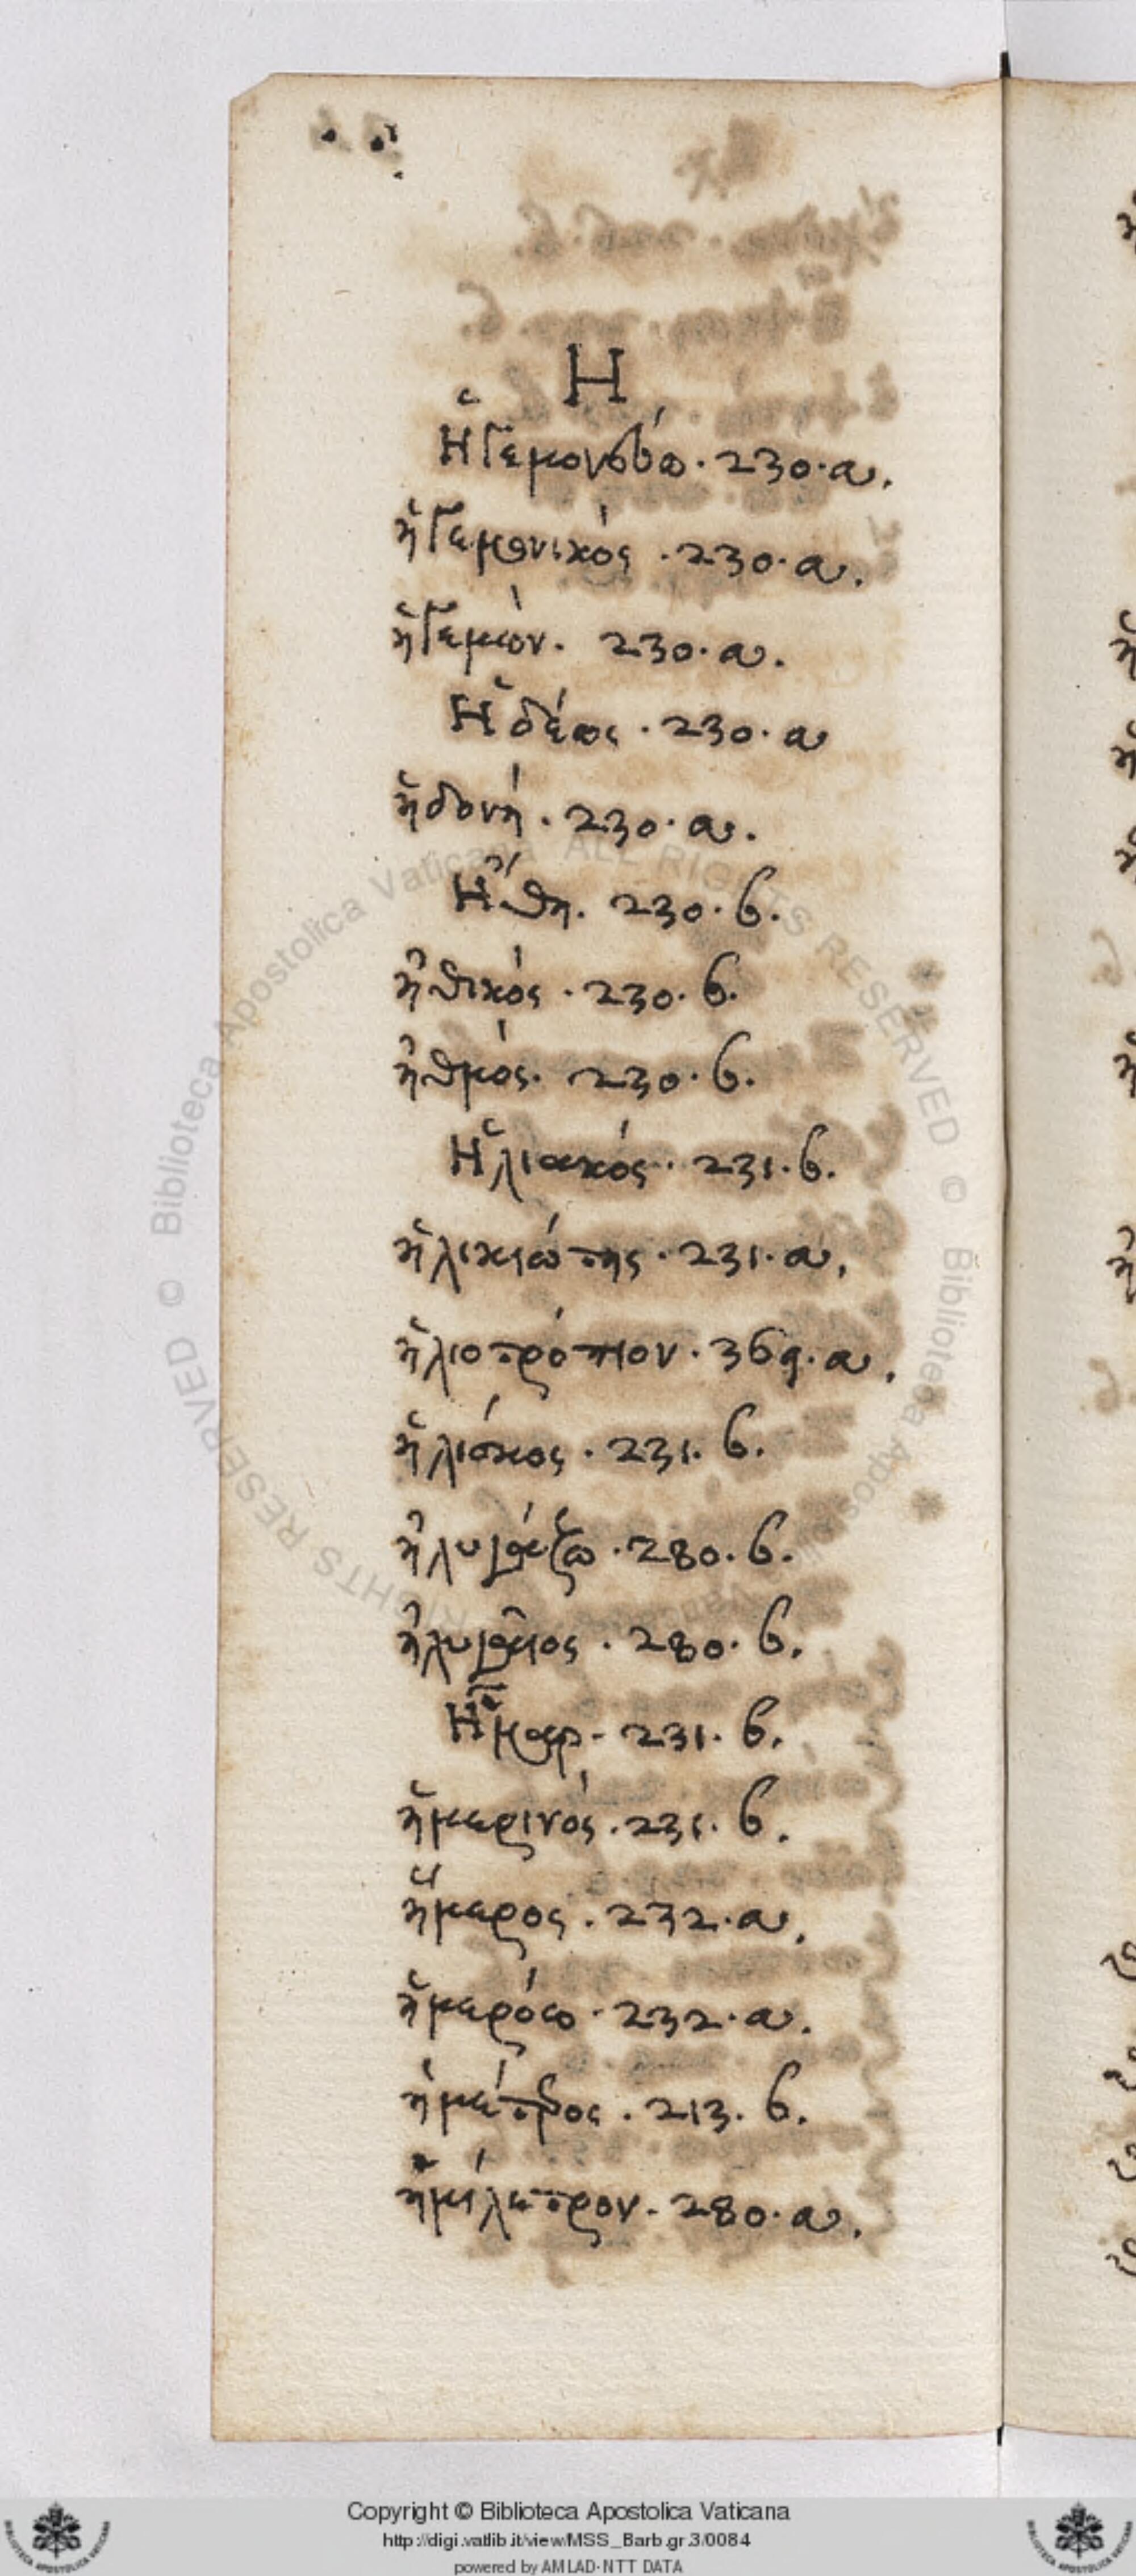 Η
Ἡγεμονεύω · 230 · a.
ἡγεμονικός · 230 · a.
ἡγεμών · 230 · a.
Ἡδέως · 230 · a
ἡδονή · 230 · a.
Ἤθη · 230 · b.
ἠθικός · 230 · b.
ἠθμός · 230 · b.
Ἡλιακός · 231 · b.
ἡλικιώτης · 231 · a.
ἡλιοτρόπιον · 369 · a.
ἡλίσκος · 231 · b.
ἠλυγάζω · 280 · b.
ἠλυγαῖος · 280 · b.
Ἦμαρ · 231 · b.
ἡμερινός · 231 · b.
ἥμερος · 232 · a.
ἡμερόω · 232 · a.
ἡμέτερος · 213 · b.
ἡμίλιτρον · 280 · a.
© Biblioteca Apostolica Vaticana ALL RIGHTS RESERVED © Biblioteca Apostolica Vaticana ALL RIGHTS RESERVED
Copyright © Biblioteca Apostolica Vaticana
http://digi.vatlib.it/view/MSS_Barb.gr.3/0084
powered by AMLAD-NTT DATA